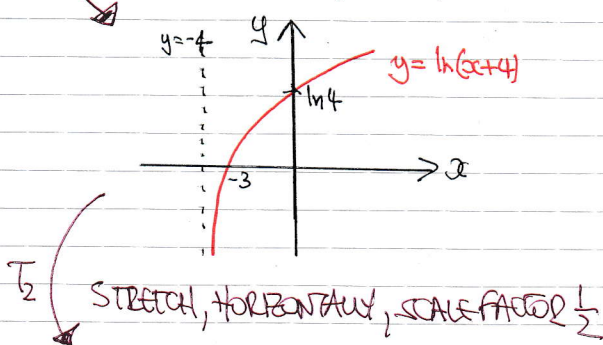 y=-4
y
y=ln(x+4)
ln4
-3
x
T2
STRETCH, HORIZONTALLY, SCALE FACTOR 1/2